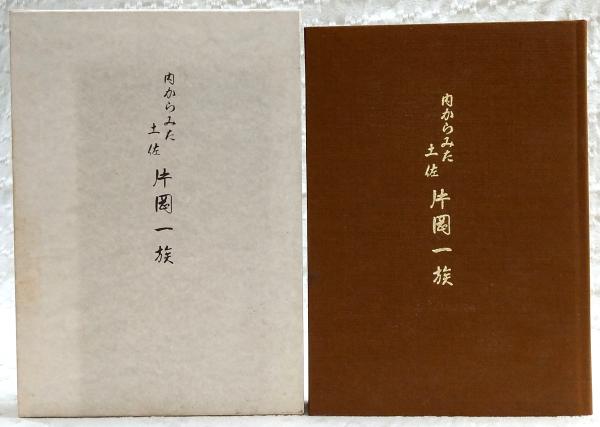 内からみた
土佐
片岡一族
内からみた
土佐
片岡一族